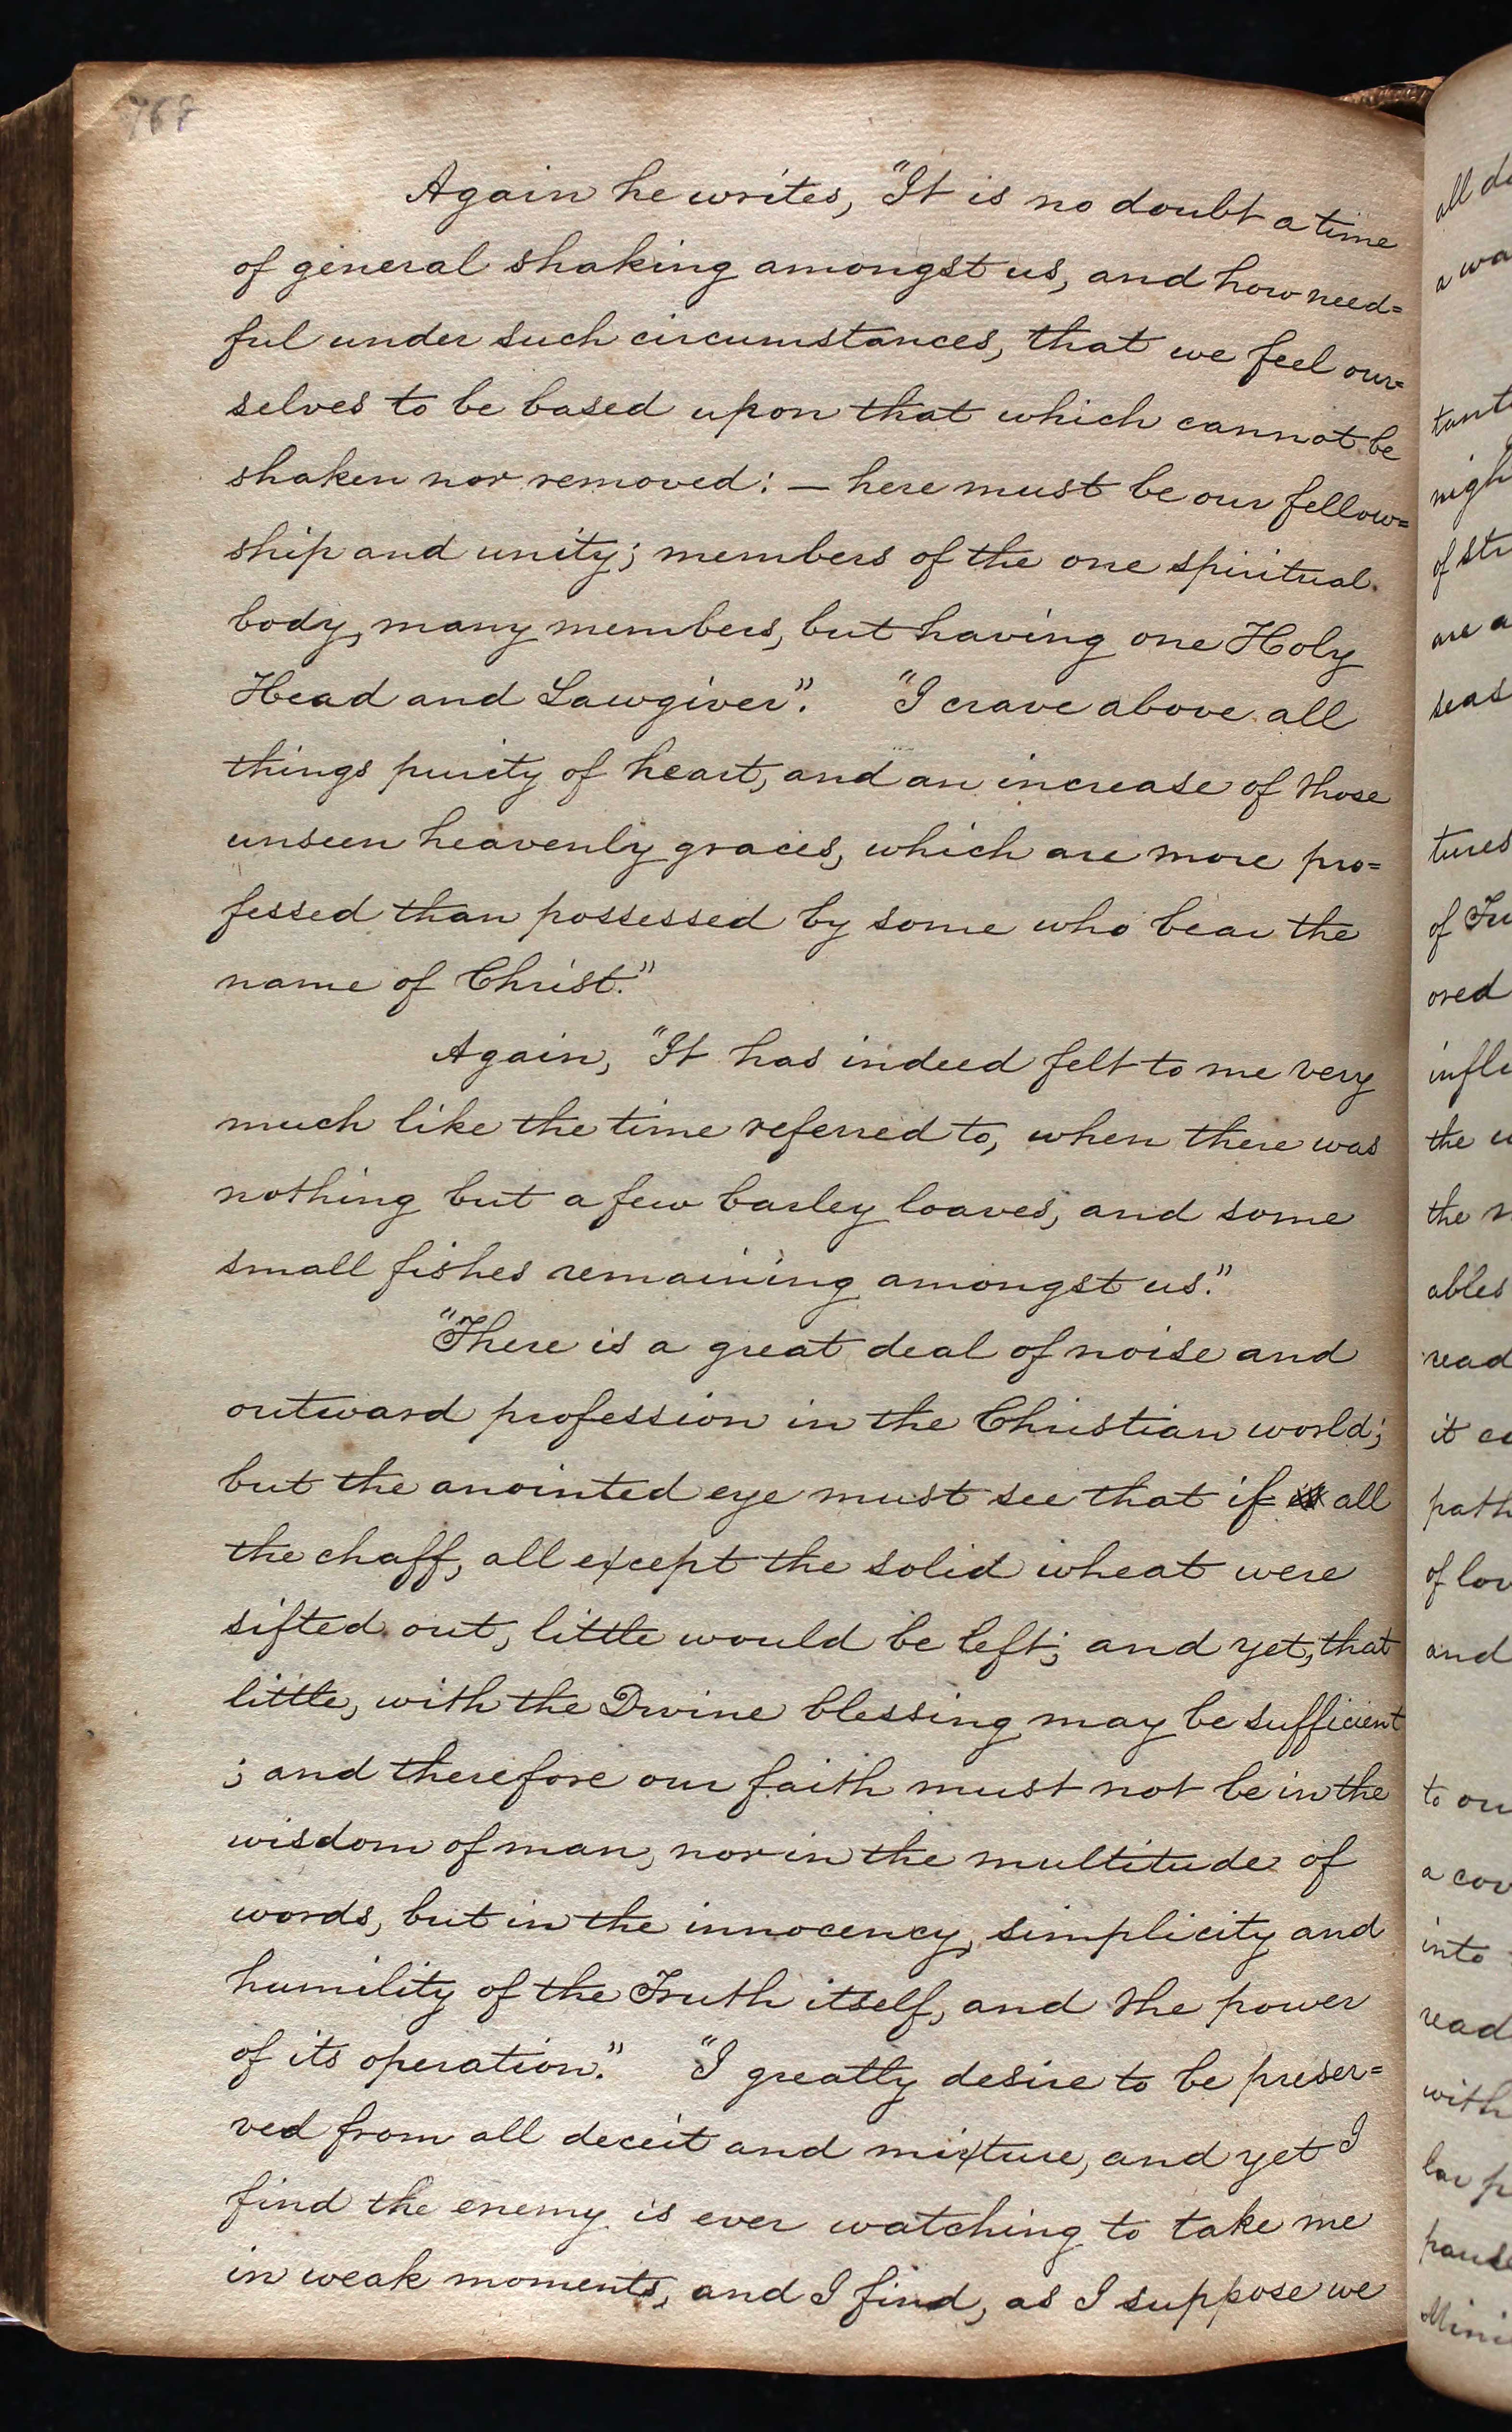 768
Again he writes, "It is no doubt a time
of general shaking amongst us, and how need=
ful under such circumstances, that we feel our=
selves to be based upon that which cannot be
shaken nor removed: — here must be our fellow=
ship and unity; members of the one spiritual
body, many members, but having one Holy
Head and Lawgiver". "I crave above all
things purity of heart, and an increase of those
unseen heavenly graces, which are more pro=
fessed than possessed by some who bear the
name of Christ."
Again, "It has indeed felt to me very
much like the time referred to, when there was
nothing but a few barley loaves, and some
small fishes remaining amongst us."
"There is a great deal of noise and
outward profession in the Christian world;
but the anointed eye must see that if all
the chaff, all except the solid wheat were
sifted out, little would be left; and yet, that
little, with the Divine blessing may be sufficient
; and therefore our faith must not be in the
wisdom of man, nor in the multitude of
words, but in the innocency, simplicity and
humility of the Truth itself, and the power
of its operation." "I greatly desire to be preser=
ved from all deceit and mixture, and yet I
find the enemy is ever watching to take me
in weak moments, and I find, as I suppose we
all
a
of
are a
seas
tures
of
ored
the
the
ables
read
it
path
of
and
to
a
into
read
with